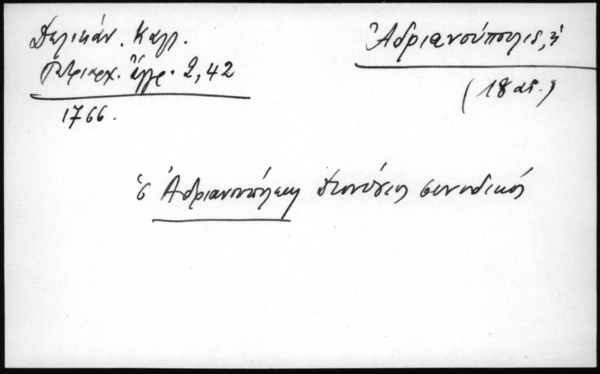 Δελικάν. Καλ.
Πατριαρχ. ἔγγρ. 2, 42
1766.
Ἀδριανούπολις, ἡ
(18 αἰ.)
ὁ Ἀδριανουπόλεως Διονύσιος συνοδικός